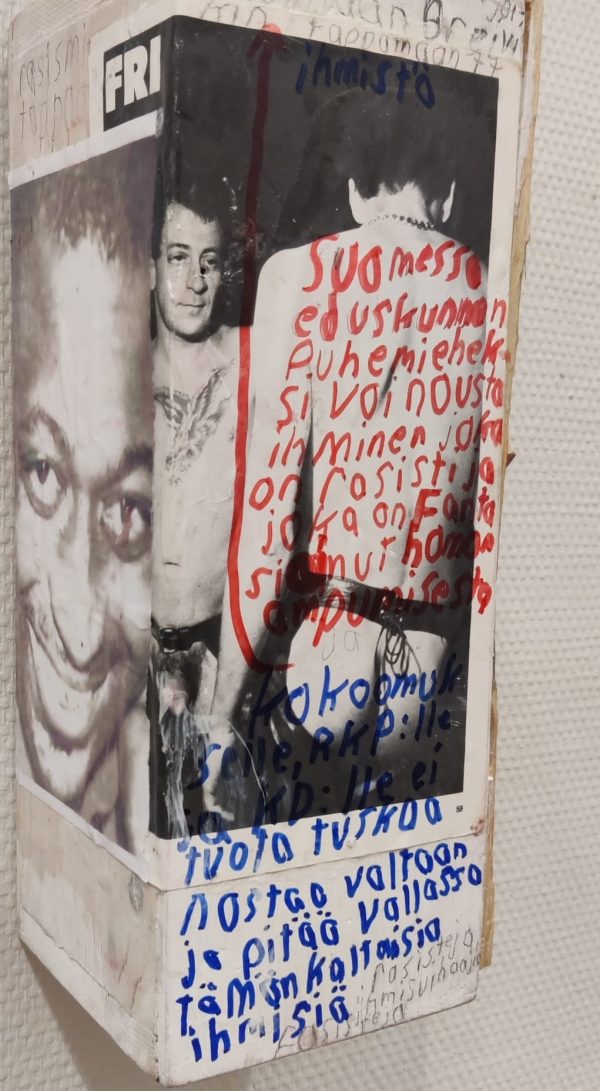 rasismi
tappa
tappamaan 77
FRI
ihmistä
Suomessa
eduskunnan
Puhemiehek-
si voi nousta
ihminen joka
on rasisti ja
joka on Fanta
sioinut homon
ampumisesta
ja
kokoomuk
selle, RKP:lle
ja KD:lle ei
tuota tuskaa
59
nostaa valtaan
ja pitää vallassa
tämänkaltaisia
ihmisiä
rasisteja
ihmisvihaajia
Fasisteja